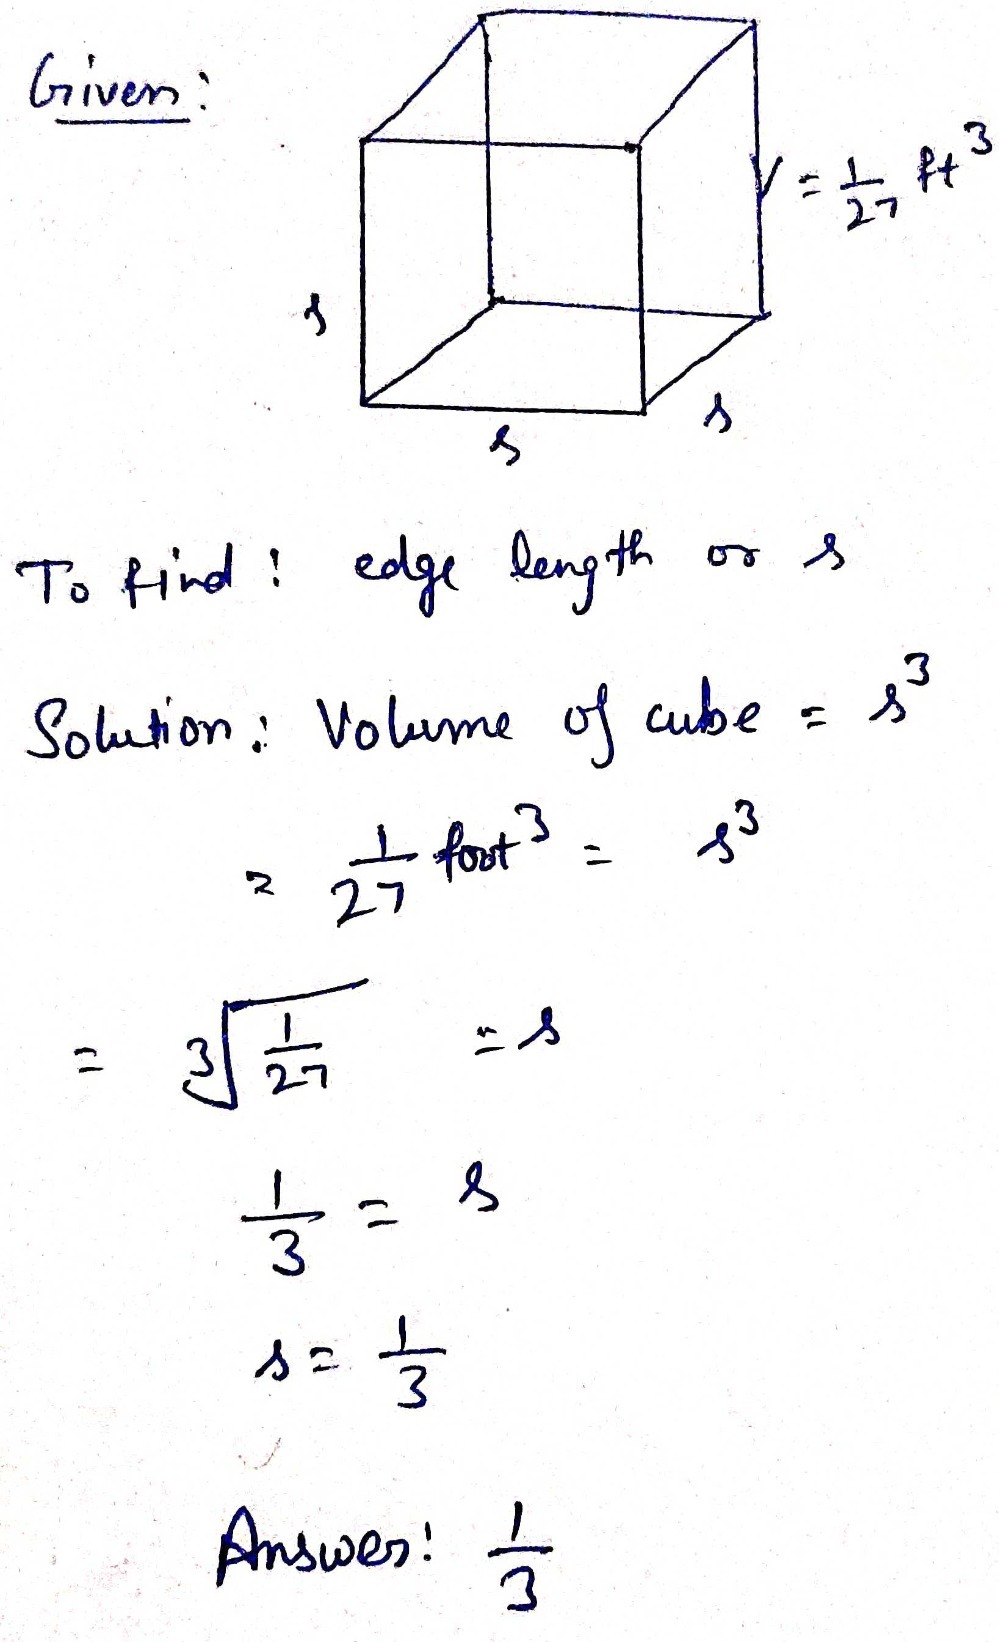 Given:
V = 1/27 ft³
s
s
s
To find: edge length or s
Solution: Volume of cube = s³
= 1/27 foot³ = s³
= ∛(1/27) = s
1/3 = s
s = 1/3
Answer: 1/3